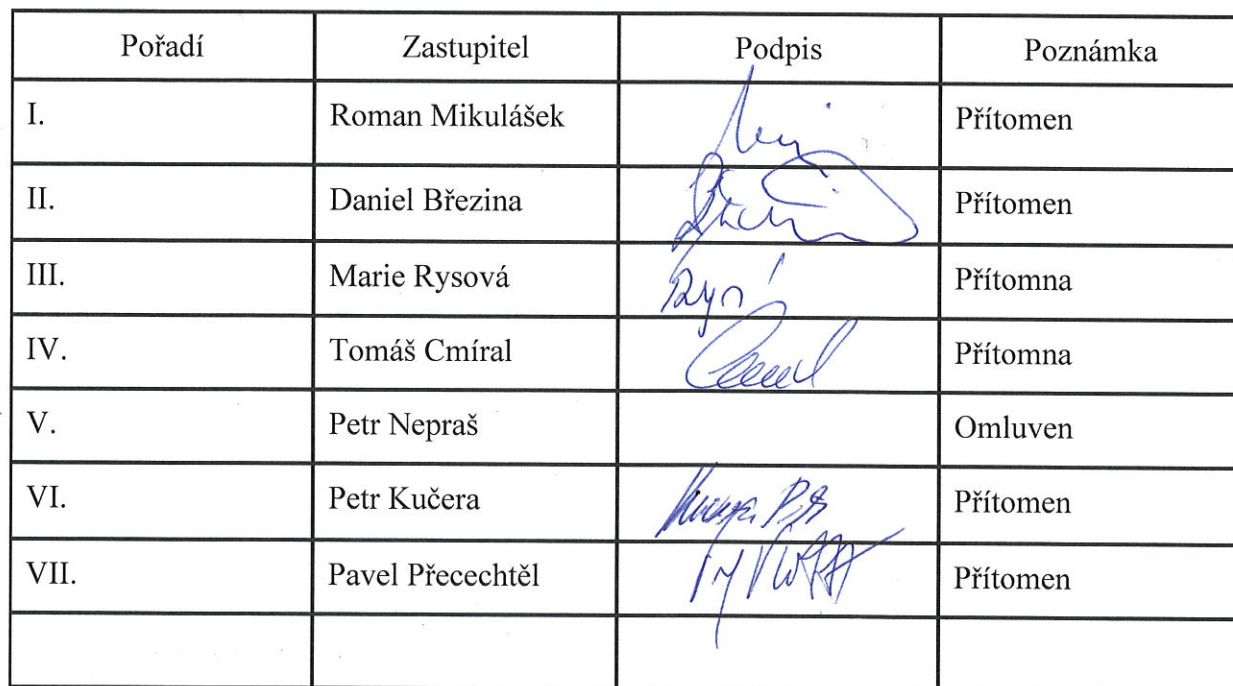 Pořadí Zastupitel Podpis Poznámka
I. Roman Mikulášek Přítomen
II. Daniel Březina Přítomen
III. Marie Rysová Přítomna
IV. Tomáš Cmíral Přítomna
V. Petr Nepraš Omluven
VI. Petr Kučera Přítomen
VII. Pavel Přecechtěl Přítomen